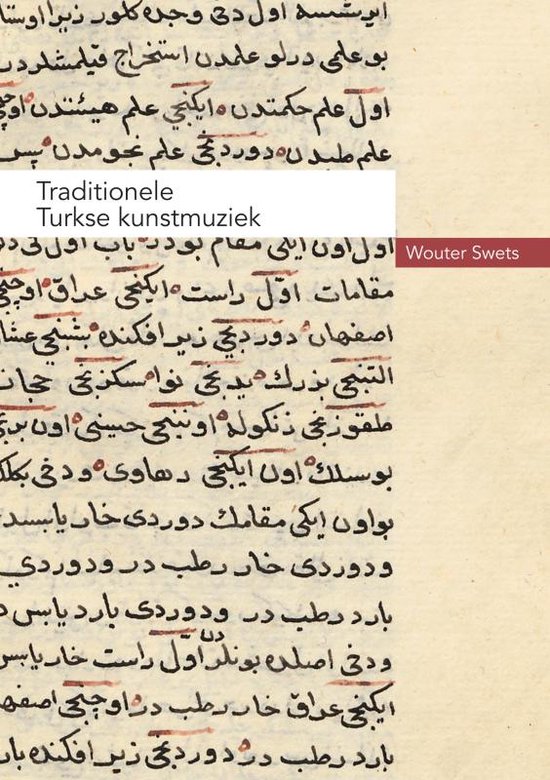 بو علمی درلو علمدن استخراج قیلمشلردر
اول علم حکمتدن ایکنجی علم هیئتدن اوچنجی
علم طبدن دوردنجی علم نجومدن پس
Traditionele
Turkse kunstmuziek
اول اون ایکی مقام بودر باب اول
Wouter Swets
مقامات اول راست ایکنجی عراق اوچنجی
اصفهان دوردنجی زیر افکنده بشنجی عشا
التنجی بزرك یدنجی نوا سکزنجی حجاز
طقوزنجی زنکوله اوننجی حسینی اون برنجی
بوسلك اون ایکنجی رهاوی ودخی
بو اون ایکی مقامك دوردی خار یابسدر
ودوردی خار رطب در ودوردی
بارد رطب در ودوردی بارد یابس
ودخی اصلده بونلردن اول راست خار یابس
ایکنجی عراق خار رطب در اوچنجی اصفها
بارد رطب در دوردنجی زیر افکنده بار